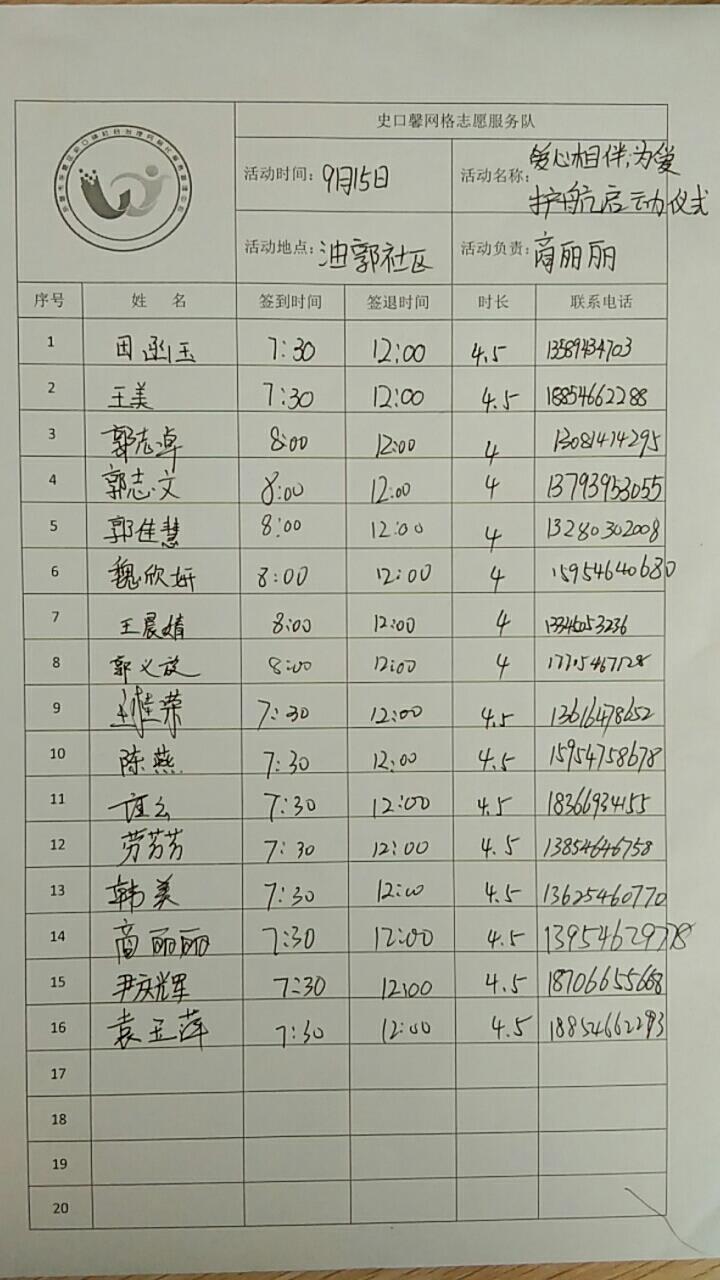 史口馨网格志愿服务队
活动时间：9月15日 活动名称：爱心相伴，为爱
护航启动仪式
活动地点：油郭社区 活动负责：商丽丽
序号 姓 名 签到时间 签退时间 时长 联系电话
1 田函玉 7:30 12:00 4.5 13589434703
2 王美 7:30 12:00 4.5 18854662288
3 郭志卓 8:00 12:00 4 13081414295
4 郭志文 8:00 12:00 4 13793953055
5 郭佳慧 8:00 12:00 4 13280302008
6 魏欣妍 8:00 12:00 4 15954640680
7 王晨婧 8:00 12:00 4 13345053236
8 郭义放 8:00 12:00 4
9 7:30 12:00 4.5 13616478652
10 陈燕 7:30 12:00 4.5 15954758678
11 7:30 12:00 4.5 18366934155
12 劳芳芳 7:30 12:00 4.5 13854646758
13 韩美 7:30 12:00 4.5 13625460770
14 商丽丽 7:30 12:00 4.5 13954629778
15 尹庆辉 7:30 12:00 4.5 18706655668
16 袁玉萍 7:30 12:00 4.5 18854662293
17
18
19
20